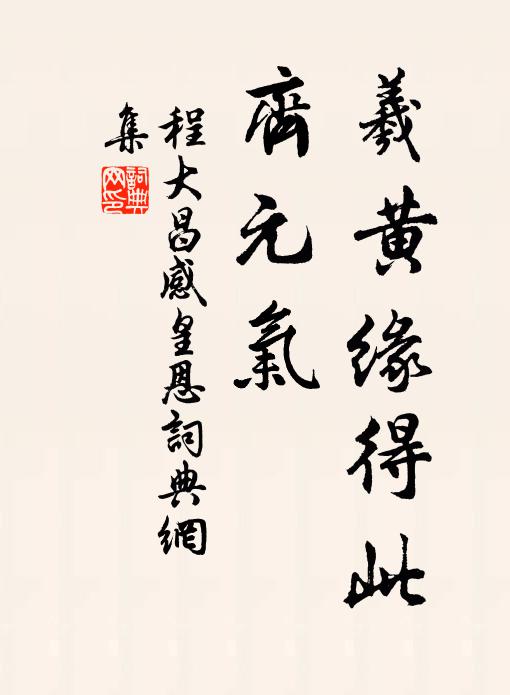 羲黄緣得此
齊元氣
程大昌感皇恩詞典網
集
詞典
网印